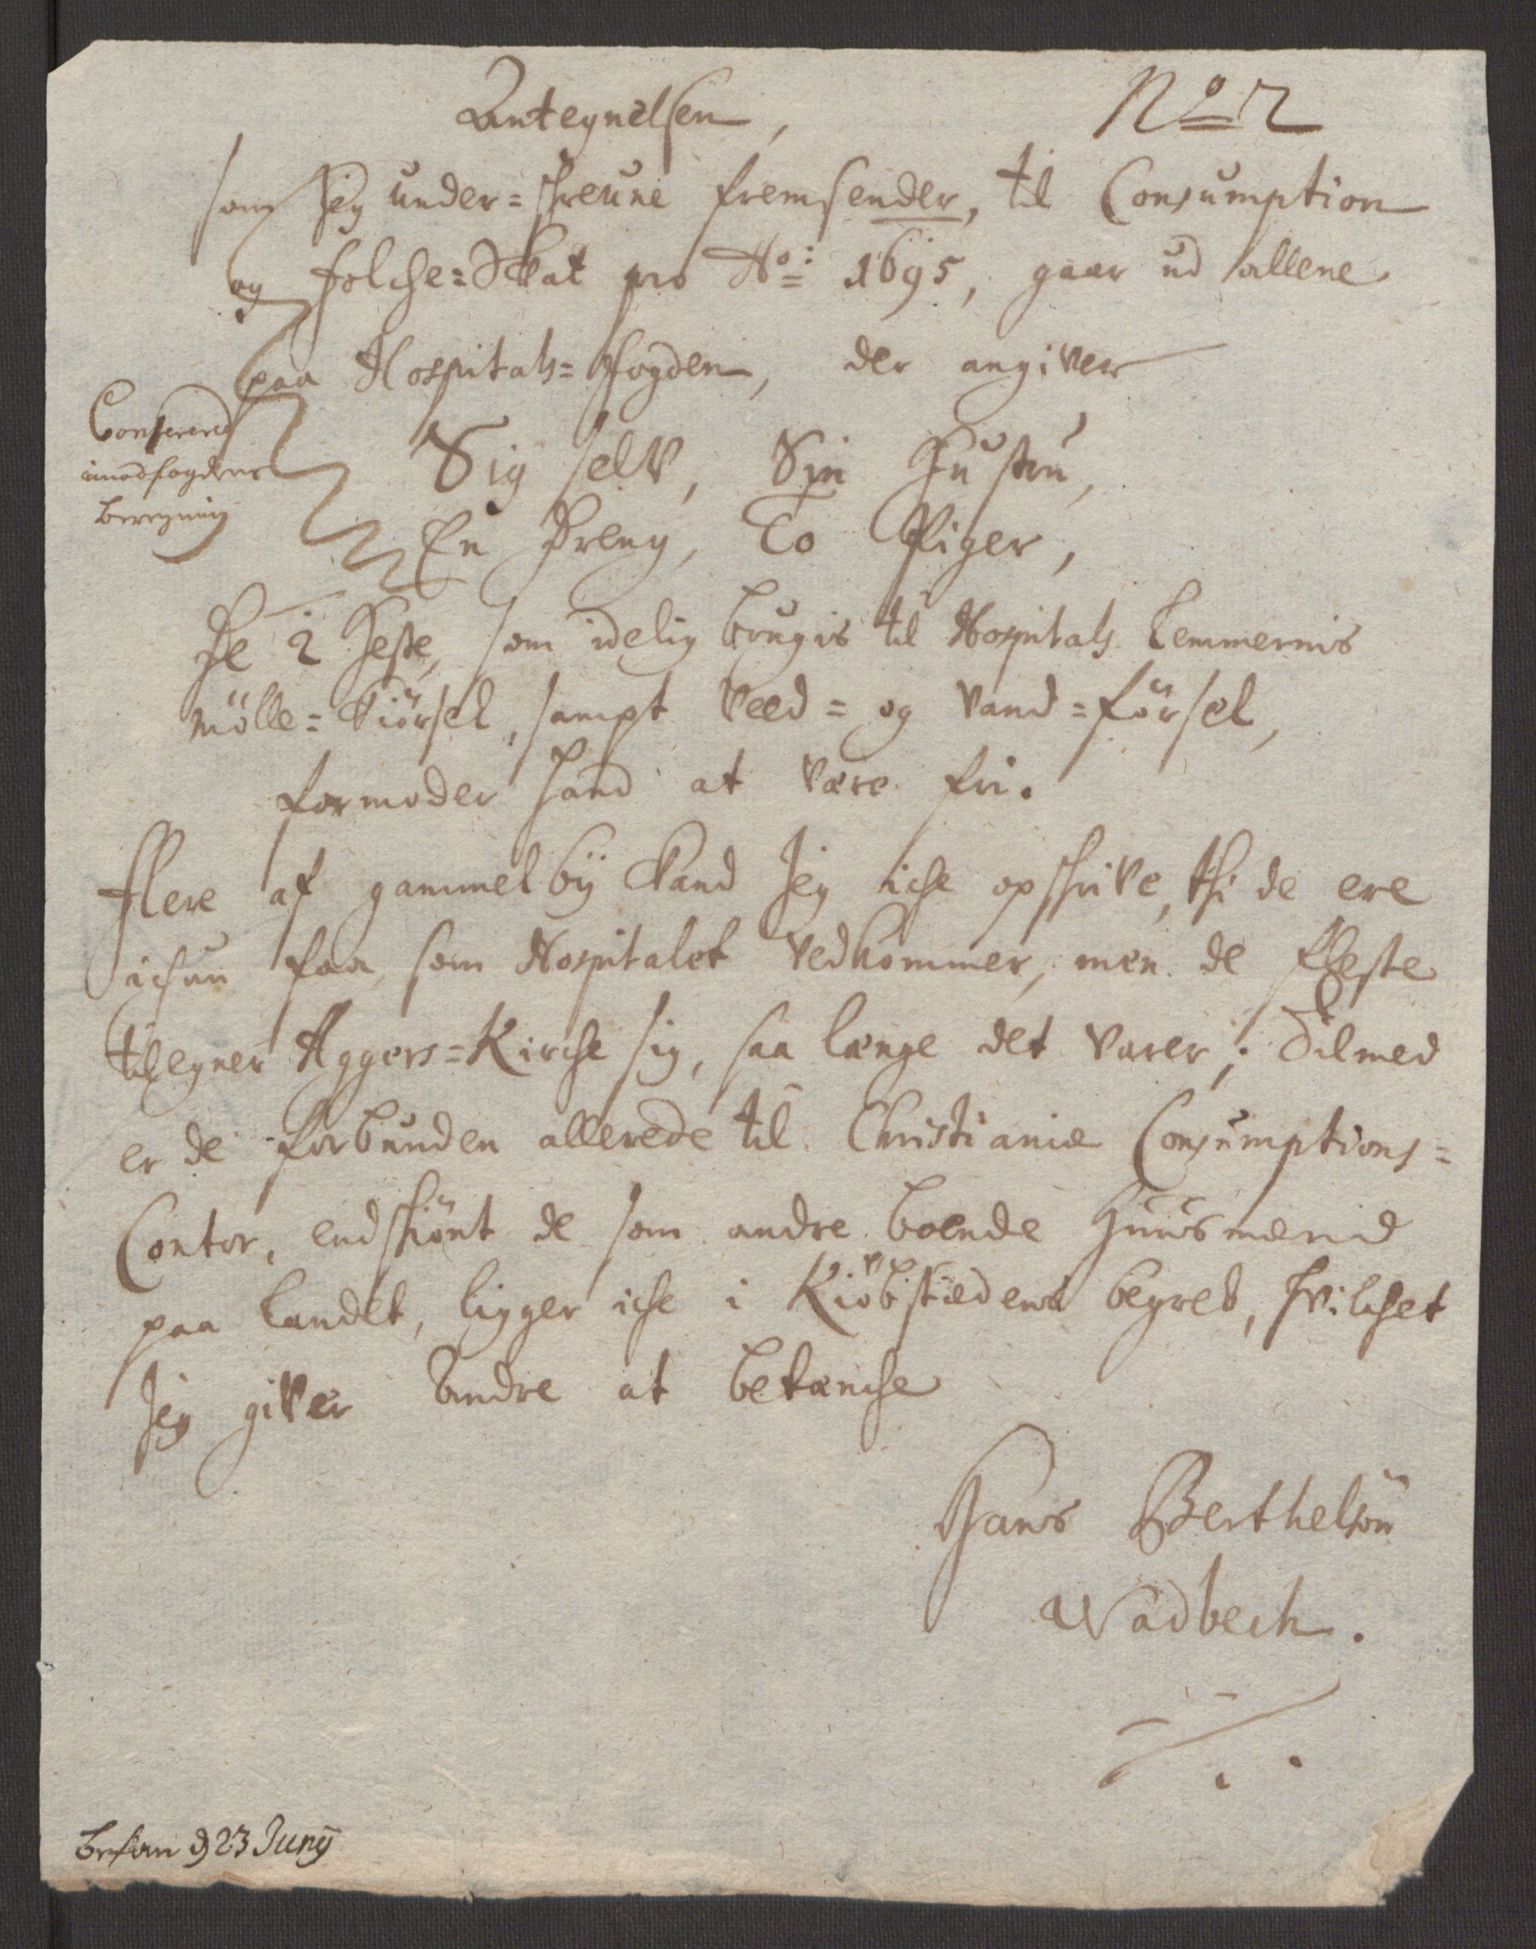 Antegnelsen,
No 2
som Jeg under=schreune fremsender, til Consumption
og folche=Skat pro Ao: 1695, gaar ud allene
paa Hospitals=fogden, der angiver
Confererit
imod fogdens
beregning
Sig selv, Sin Hustru,
En Dreng, To Piger,
De 2 Heste, som idelig brugis til Hospitals Lemmernis
Mölle=Kiörsel, sampt Veed= og Vand=försel,
formoder hand at være fri.
Flere af gammelbÿ Kand Jeg iche opschrive, thi de ere
ichun faa, som Hospitalet vedkommer, men de fleste
tilegner Aggers=Kirche sig, saa længe det varer; Tilmed
er de forbunden allerede til Christianiæ Consumptions=
Contor, endschiönt de som andre boende Huusmænd
paa Landet, ligger iche i Kiöbstædens begreb, hvilchet
Jeg giver Andre at betænche
Hans Berthelsön
Wadbech.
bekom d 23 Junÿ